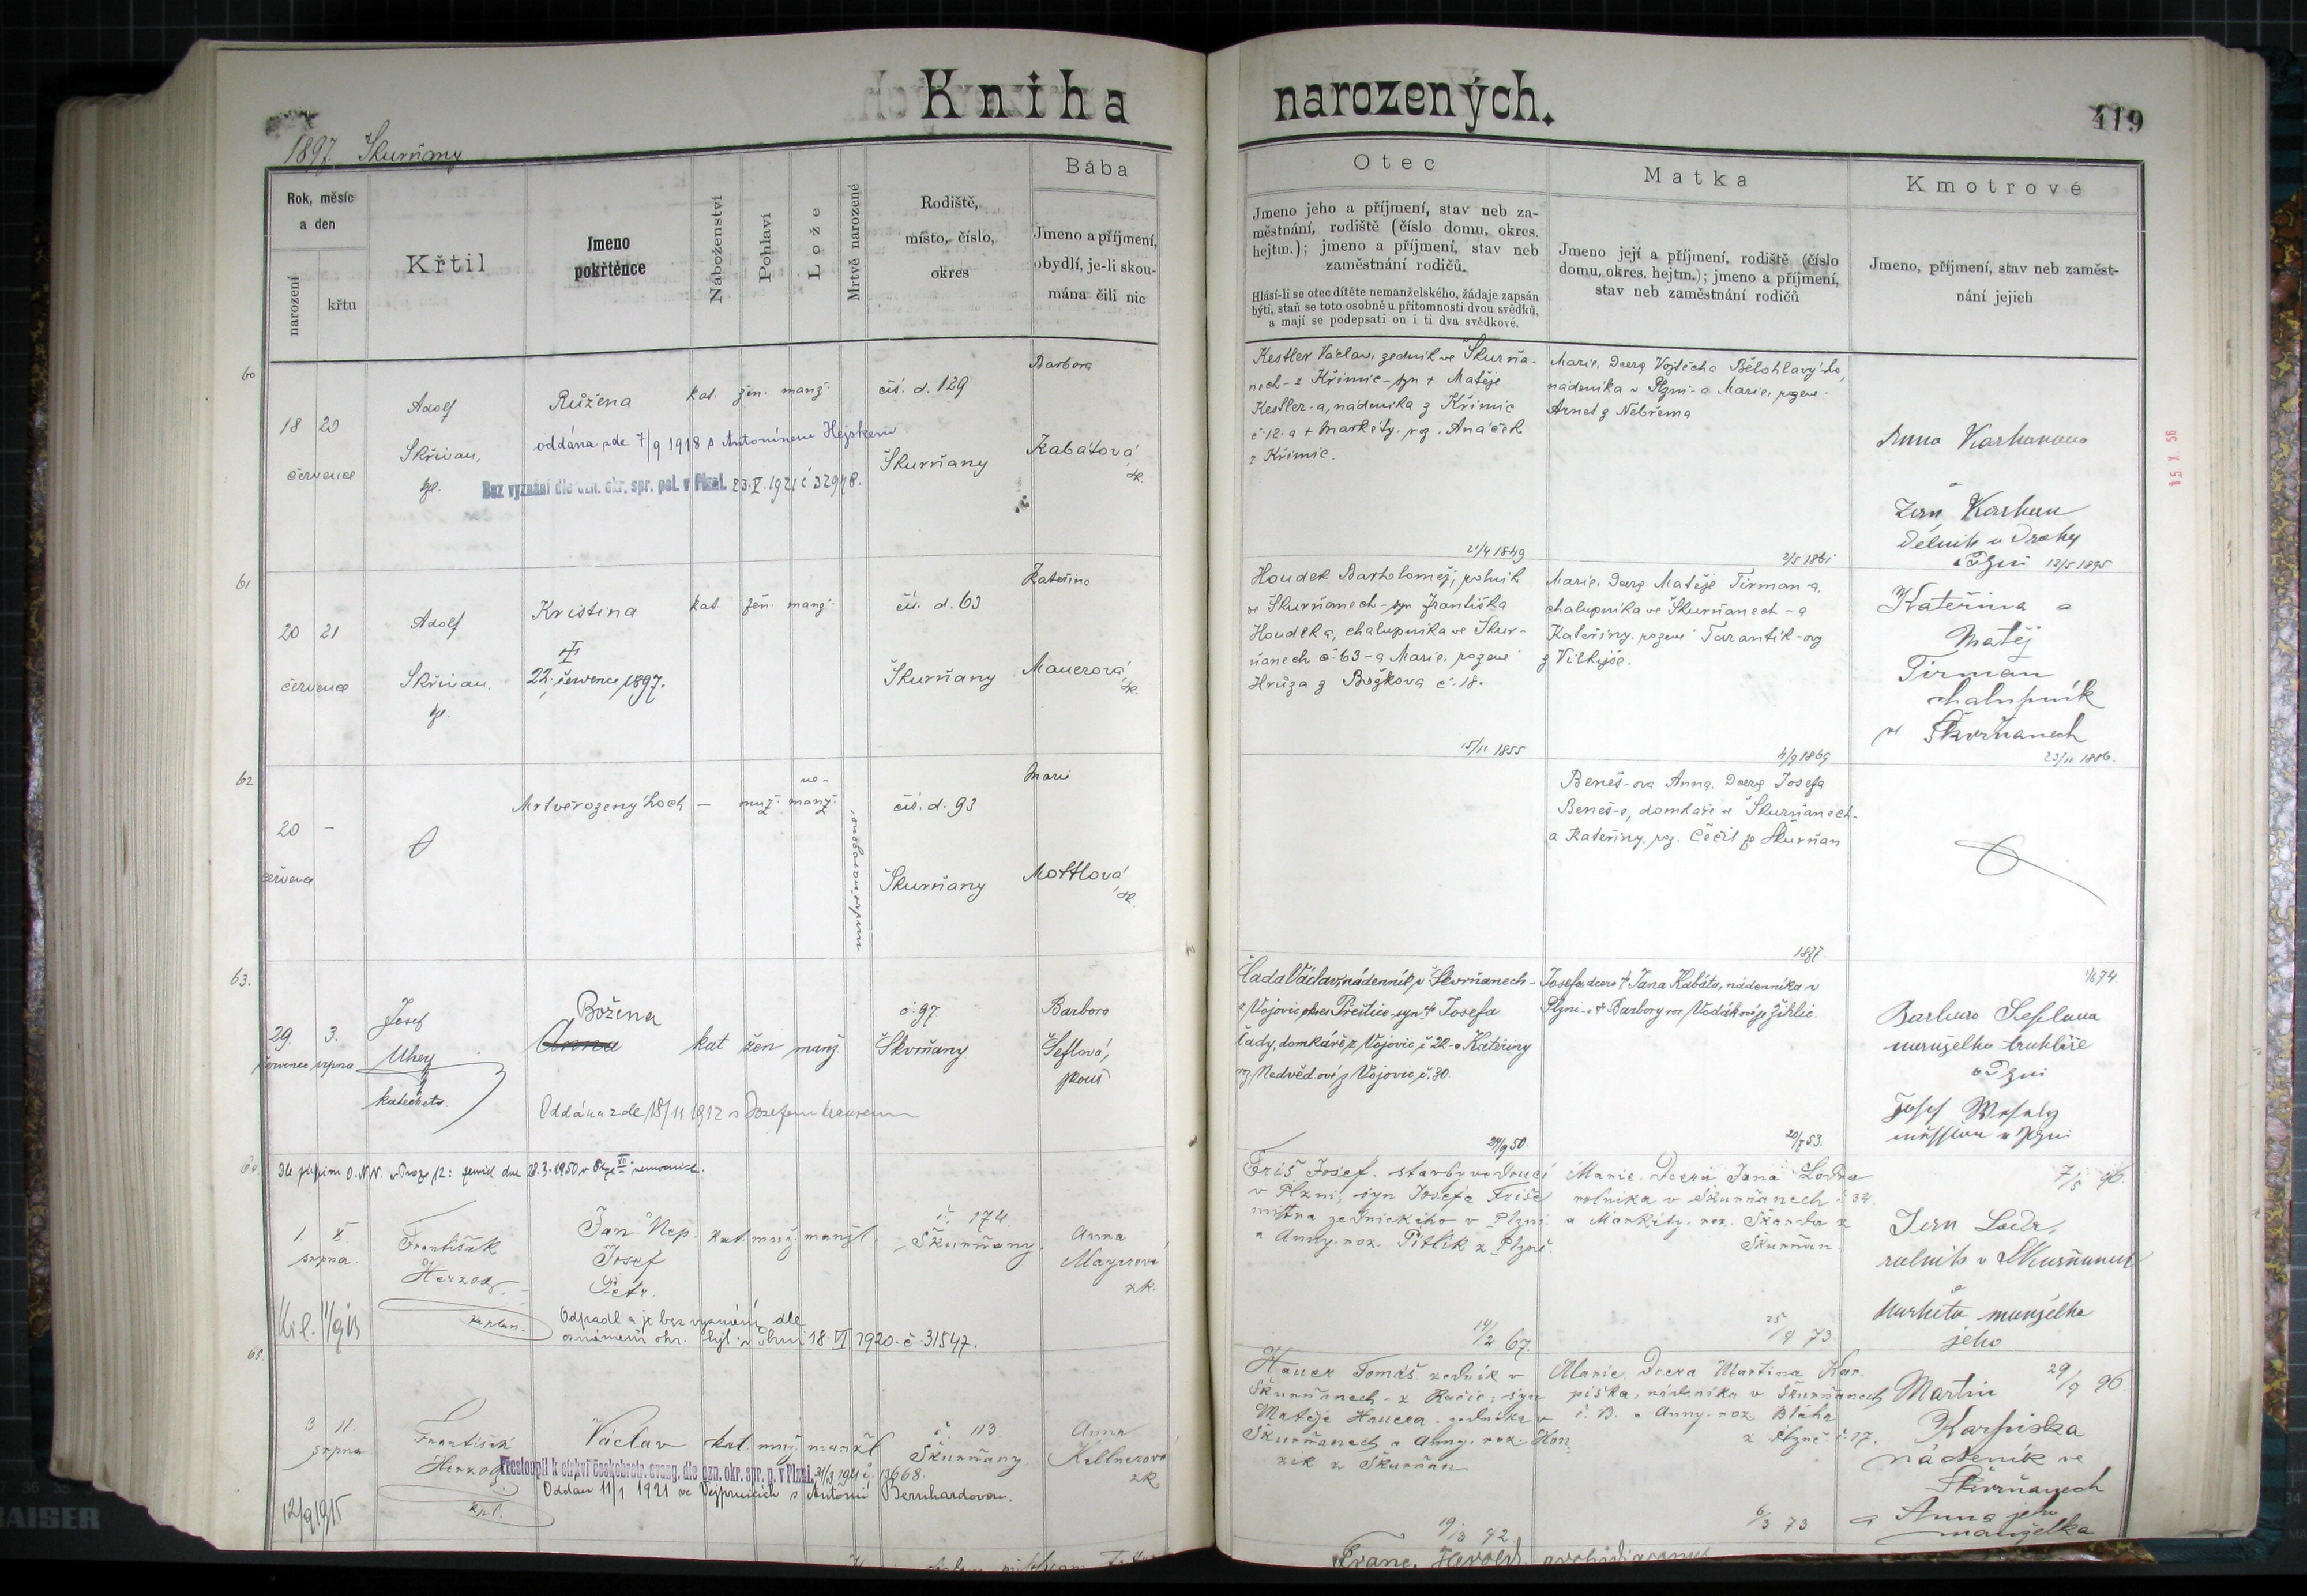 Kniha narozených.
419
1897. Škurňany
Rok, měsíc
a den
narození
křtu
Křtil
Jmeno
pokřtěnce
Náboženství
Pohlaví
Lože
Mrtvě narozené
Rodiště,
místo, číslo,
okres
Bába
Jmeno a příjmení,
obydlí, je-li skou-
mána čili nic
Otec
Jmeno jeho a příjmení, stav neb za-
městnání, rodiště (číslo domu, okres.
hejtm.); jmeno a příjmení, stav neb
zaměstnání rodičů.
Hlásí-li se otec dítěte nemanželského, žádaje zapsán
býti, staň se toto osobně u přítomnosti dvou svědků,
a mají se podepsati on i ti dva svědkové.
Matka
Jmeno její a příjmení, rodiště (číslo
domu, okres. hejtm.); jmeno a příjmení,
stav neb zaměstnání rodičů
Kmotrové
Jmeno, příjmení, stav neb zaměst-
nání jejich
60
18 20
července
Adolf
Skřivan,
kpl.
Růžena
kat. žen. manž.
oddána dne 7/9 1918 s Antonínem Hejskem
Bez vyznání dle ozn. okr. spr. pol. v Plzni. 23.V.1921 č 32978.
čís. d. 129
Škurňany
Barbora
Kabátová
zk.
Kestler Václav, zedník ve Škurňa-
nech - z Křimic - syn + Matěje
Kestler-a, nádeníka z Křimic
č. 12. a + Markéty. roz. Anáček
z Křimic.
21/4 1849
Marie, dcera Vojtěcha Bělohlavý-ho,
nádeníka v Plzni - a Marie, rozené
Arnet z Nebřema
2/5 1861
Anna Karhanova
a
Jan Karhan
dělník u Dráhy
v Plzni 13/5 1895
15. X. 56
61
20 21
července
Adolf
Skřivan.
kpl.
Kristina
kat. žen. manž.
22. července 1897.
čís. d. 63
Škurňany
Kateřina
Mauerová
zk.
Houdek Bartholoměj, rolník
ve Škurňanech - syn Františka
Houdeka, chalupníka ve Škur-
ňanech č. 63 - a Marie, rozené
Hrůza z Božkova č. 18.
15/11 1855
Marie, dcera Matěje Tirman-a,
chalupníka ve Škurňanech - a
Kateřiny. rozené Tarantík-ovy
z Vilkyše.
4/9 1869
Kateřina a
Matěj
Tirman
chalupník
ve Škvrňanech
23/11 1886.
62
20 -
července
Mrtvěrozený hoch - muž. ne-
manž.
mrtvě narozeno
čís. d. 93
Škurňany
Marie
Mottlová
zk.
Beneš-ova Anna. dcera Josefa
Beneš-e, domkáře ve Škurňanech-
a Kateřiny. roz. Čečil ze Škurňan
1877
63.
29. 3.
července srpna
Josef
Uhey
katecheta.
Božena
Anna
kat žen manž.
Oddána zde 18/11 1912 s Josefem
č. 97
Škvrňany
Barbora
Šeflová,
zkouš
Čada Václav, nádenník v Škvrňanech -
z Vojovic okres Přeštice - syn + Josefa
Čady, domkáře z Vojovic č 22 - a Kateřiny
roz Nedvěd.ové z Vojovic č. 30.
24/9 50.
Josefa dcera + Jana Kabáta, nádenníka v
Plzni - a + Barbory roz Vodákové ze Žihlic.
20/7 53.
1/6 74.
Barbora Šeflova
manželka truhláře
v Plzni
Josef Wesely
měšťan v Plzni
64.
Dle přípisu O.N.V. v Praze 12: zemřel dne 28.3.1950 v Praze XII nemocnice.
1. 8.
srpna.
František
Herzog.
kaplan.
Jan Nep.
Josef
Petr.
kat. muž. manžl.
Odpadl a je bez vyznání dle
oznámení okr. hejt. v Plzni 18. VI 1920. č. 31547.
č. 174.
Škurňany.
Anna
Mayerová
zk.
Friš Josef. stavbyvedoucí
v Plzni, syn Josefa Friše
mistra zednického v Plzni
a Anny. roz. Pitlík z Plzně.
14/2 67.
Marie. dcera Jana Lodra
rolníka v Škurňanech č. 34.
a Markéty. roz. Škarda z
Škurňan.
25/9 73
7/5 96.
Jan Lodr,
rolník v Škurňanech
a
Markéta manželka
jeho
65.
3 11.
srpna
12/9 1915
František
Herzog.
kpl.
Václav
kat. muž. manžl.
Přestoupil k církvi českobratr. evang. dle ozn. okr. spr. p. v Plzni. 31/3 1921 č. 13668.
Oddán 11/1 1921 ve Vejprnicích s Antonií Bernhardovou.
č. 113
Škurňany.
Anna
Kellnerová
zk
Hauer Tomáš. zedník v
Škurňanech - z Račic; syn
Matěje Hauera. zedníka v
Škurňanech a Anny. roz. Hon-
zík z Škurňan.
19/12 72.
Marie. dcera Martina Kar-
piška, nádeníka v Škurňanech
č. 13. a Anny. roz Bláha
z Plzně. č. 17.
6/3 73
29/9 96.
Martin
Karpiska
nádeník ve
Škvrňanech
a Anna jeho
manželka
Franc. Herold.